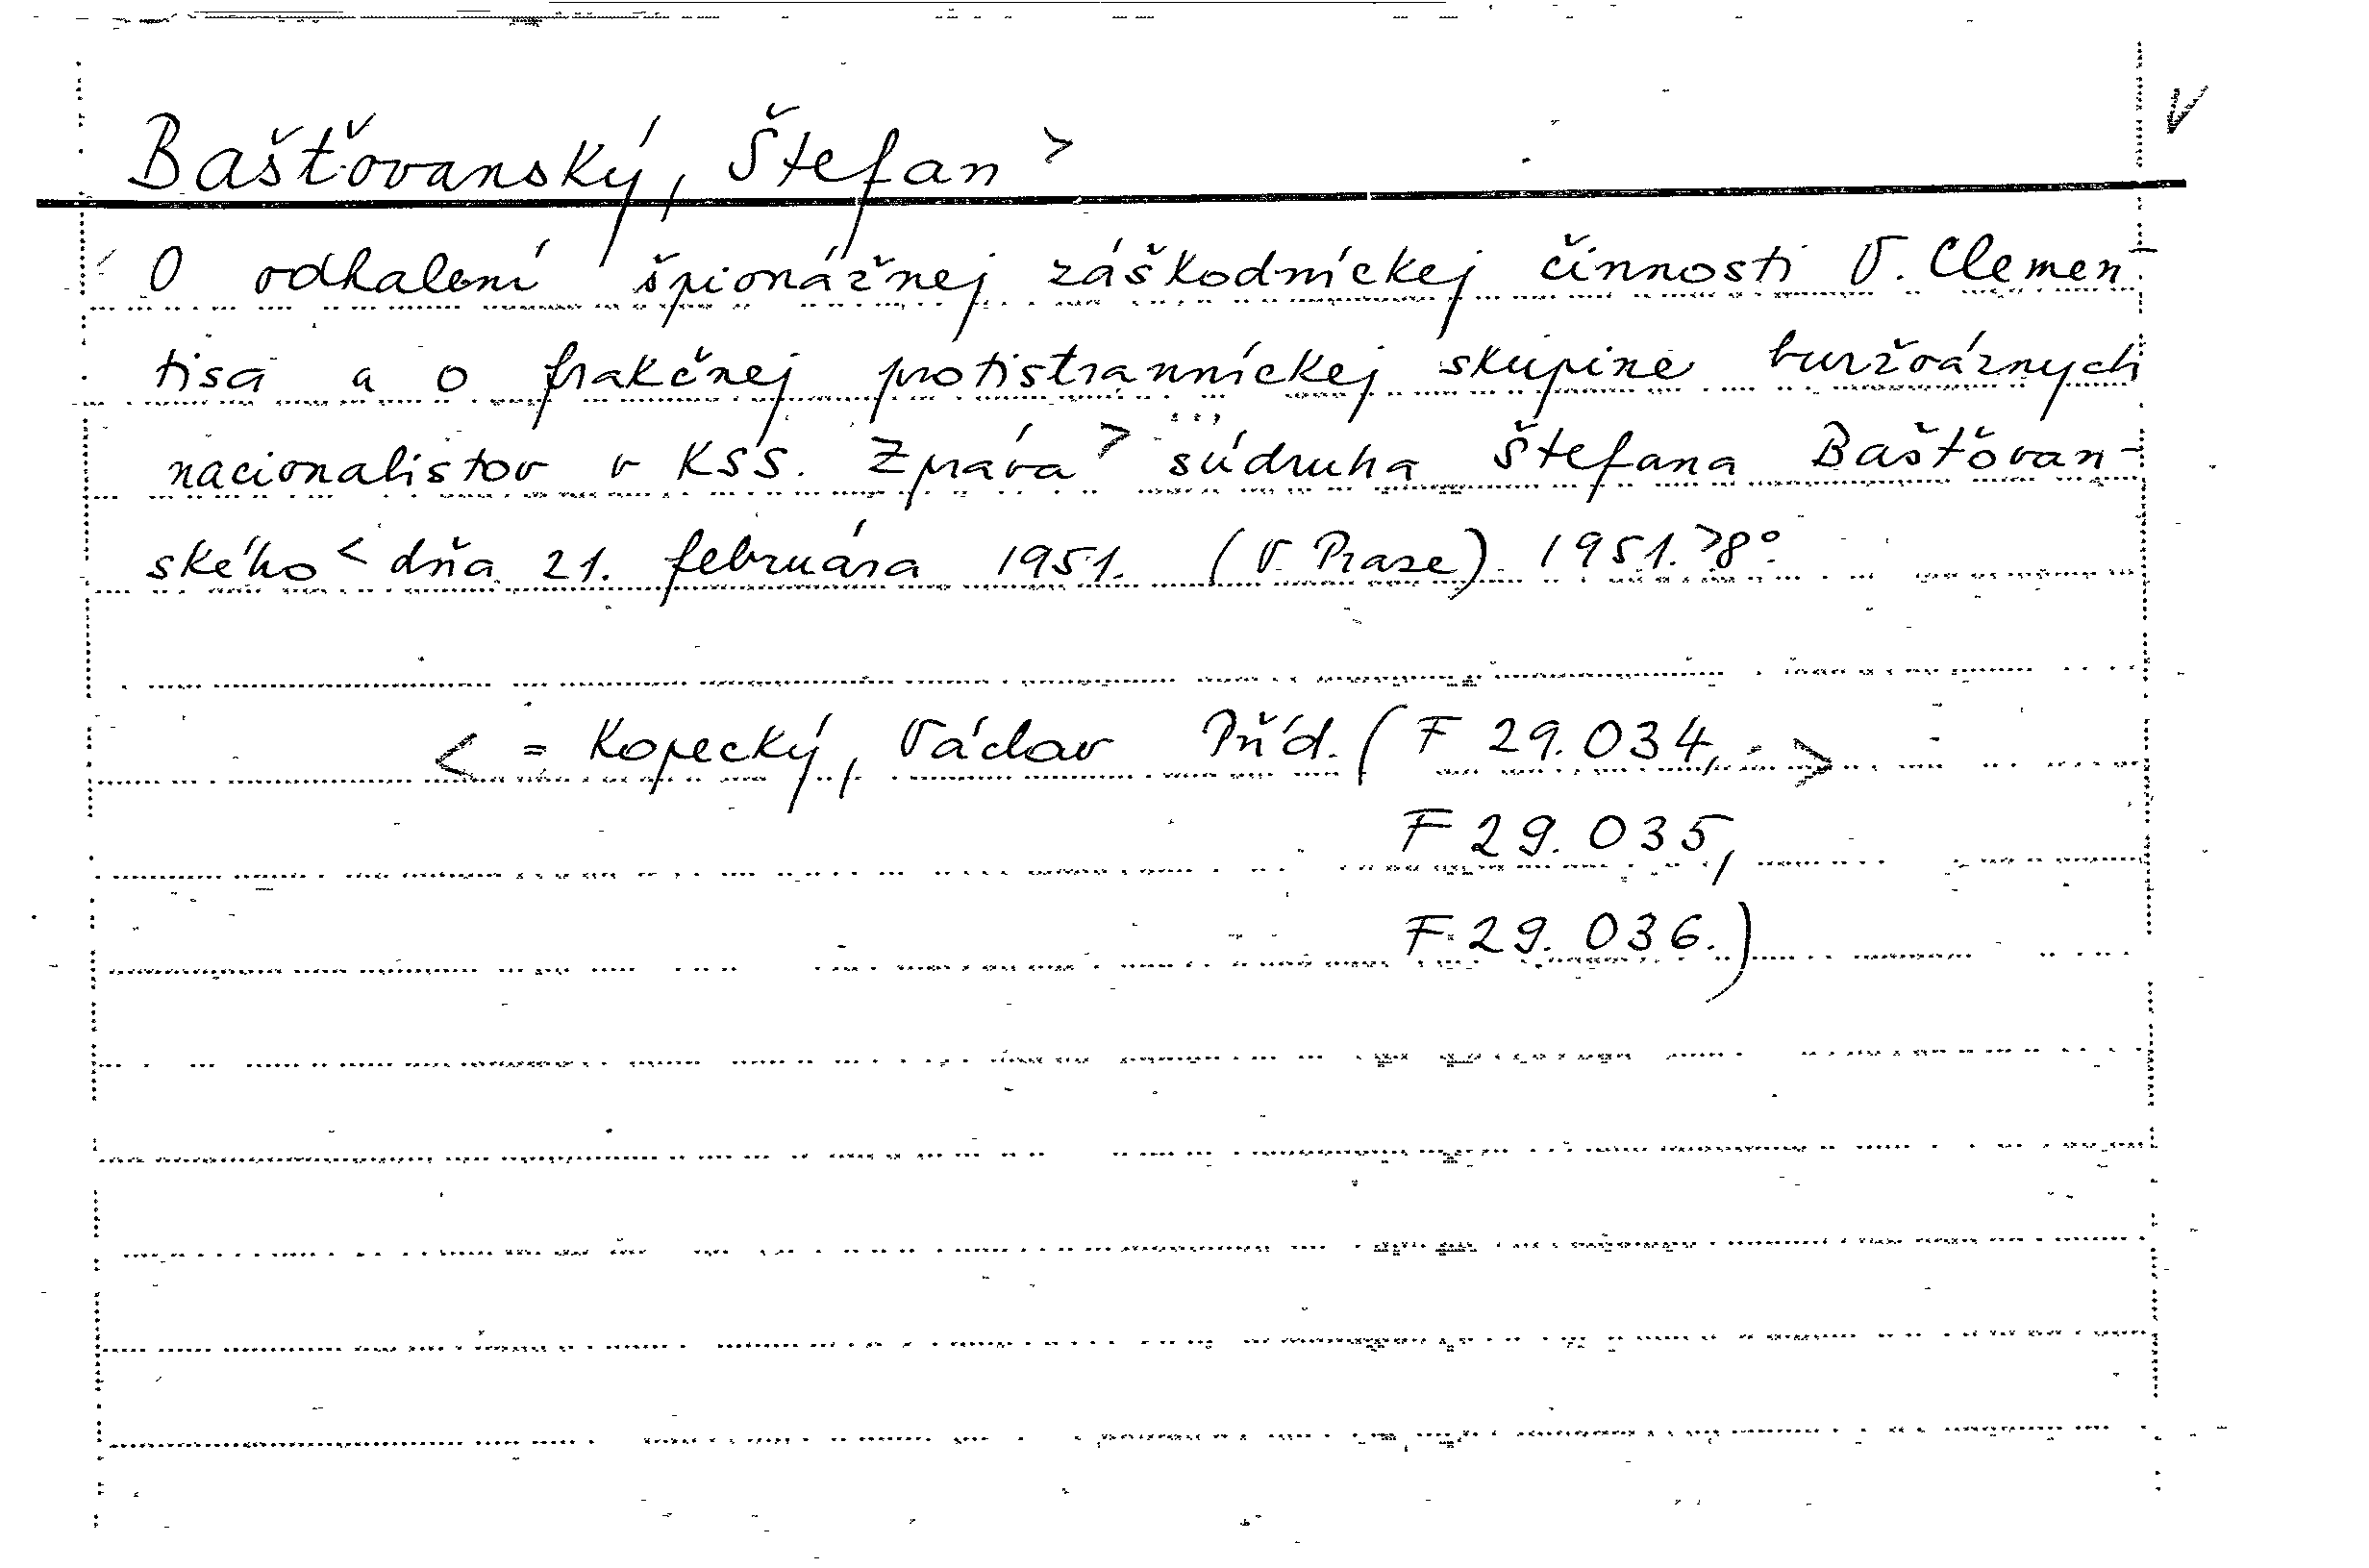 Bašťovanský, Štefan > V
O odhalení špionážnej záškodníckej činnosti V. Clemen-
tisa a o frakčnej protistranníckej skupine buržoáznych
nacionalistov v KSS. Zpráva > súdruha Štefana Bašťovan-
ského < dňa 21. februára 1951. (V Praze) 1951. > 8°.
< = Kopecký, Václav Příd. (F 29.034, >
F 29.035,
F 29.036.)